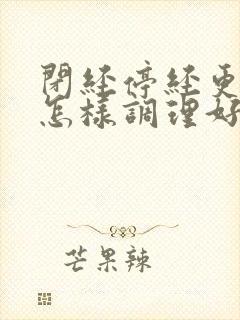 閉經停經更
怎樣調理好
芒果辣